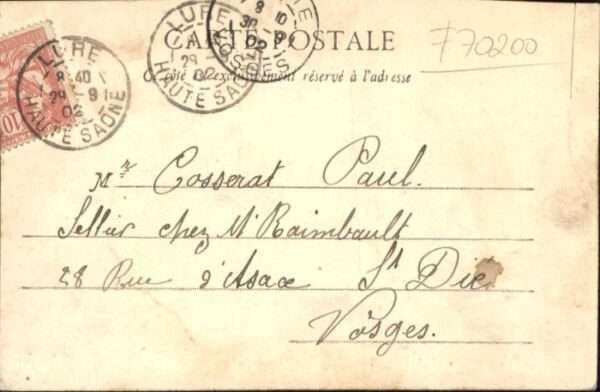 CARTE POSTALE
Ce côté est exclusivement réservé à l'adresse
F70200
LURE
8 40
29 9
02
HAUTE SAÔNE
LURE
29
02
HAUTE SAÔNE
8 10
30 9
02
VOSGES
10
Mr Cosserat Paul.
Sellier chez Mr Raimbault
28 Rue d'Alsace St Dié
Vosges.